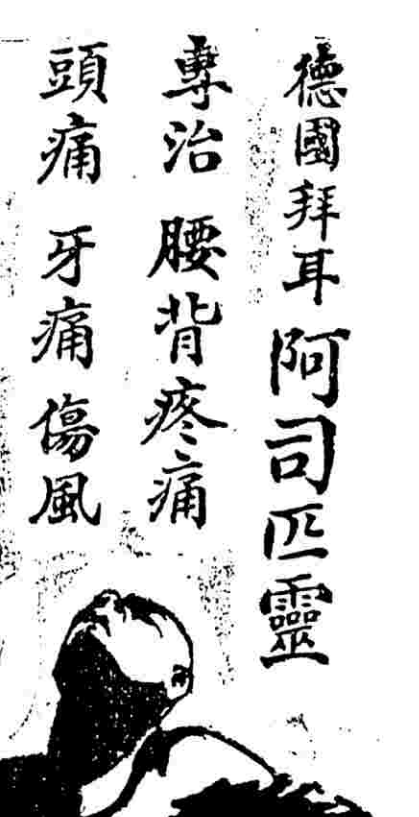 德國拜耳阿司匹靈
專治 腰背疼痛
頭痛 牙痛 傷風